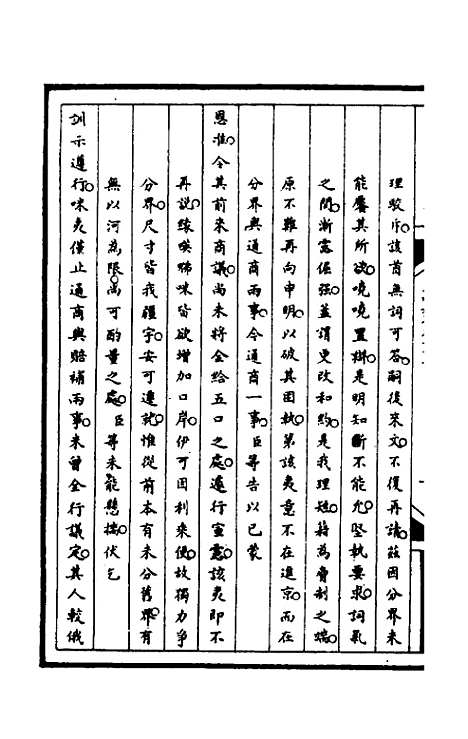 理駁斥該酋無詞可答嗣後來文不復再請茲因分界未
能饜其所欲曉曉置辯是明知斷不能允堅執要求詞氣
之間漸露倨强蓋謂更改和約是我理短藉為脅制之端
原不難再向申明以破其固執第該夷意不在進京而在
分界與通商兩事今通商一事臣等告以已蒙
恩准令其前來商議尚未將全給五口之處遽行宣露該夷即不
再說緣㗆咈咪皆欲增加口岸伊可因利來便故獨力爭
分界尺寸皆我疆宇安可遷就惟從前本有未分舊界有
無以河為限尚可酌量之處臣等未能懸揣伏乞
訓示遵行咪夷僅止通商與賠補兩事未曾全行議定其人較俄